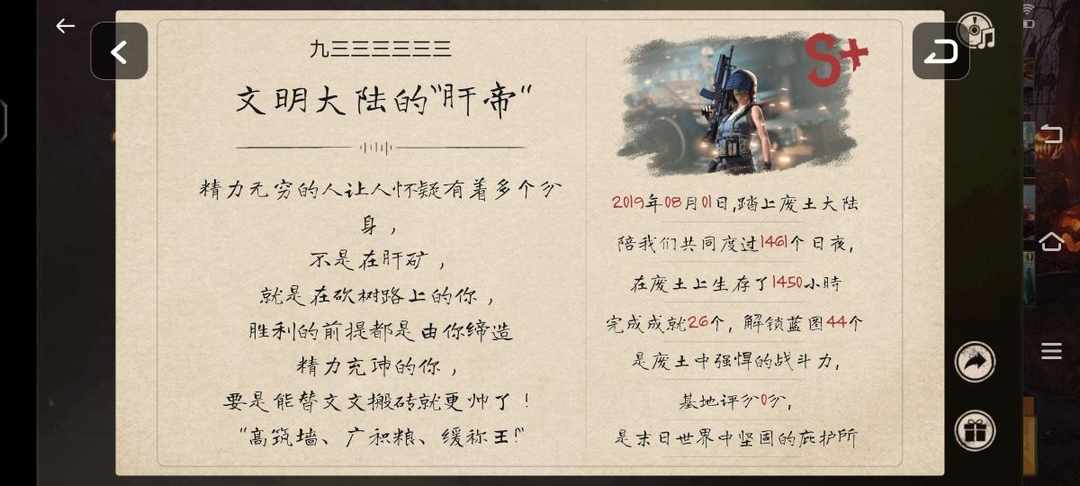 九三三三三三三
文明大陆的"肝帝"
精力无穷的人让人怀疑有着多个分
身，
不是在肝矿，
就是在砍树路上的你，
胜利的前提都是由你缔造
精力充沛的你，
要是能替文文搬砖就更帅了！
"高筑墙、广积粮、缓称王!"
S+
2019年08月01日,踏上废土大陆
陪我们共同度过1461个日夜,
在废土上生存了1450小時
完成成就26个，解锁蓝图44个
是废土中强悍的战斗力,
基地评分0分,
是末日世界中坚固的庇护所